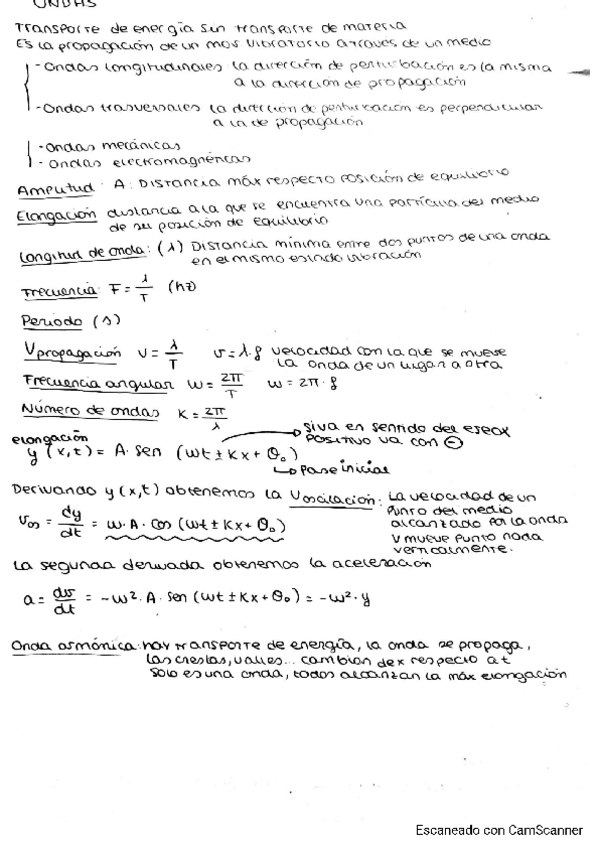 ONDAS
Transporte de energía sin transporte de materia
Es la propagación de un mov vibratorio a traves de un medio
- Ondas longitudinales la dirección de perturbación es la misma
a la dirección de propagación
- Ondas trasversales la dirección de perturbación es perpendicular
a la de propagación
- Ondas mecánicas
- Ondas electromagnéticas
Amplitud: A: Distancia máx respecto posición de equilibrio
Elongación distancia a la que se encuentra una partícula del medio
de su posición de equilibrio
Longitud de onda: (λ) Distancia mínima entre dos puntos de una onda
en el mismo estado vibración
Frecuencia: F = λ/T (hz)
Periodo (s)
Vpropagación v = λ/T v = λ·f velocidad con la que se mueve
la onda de un lugar a otra
Frecuencia angular w = 2π/T w = 2π·f
Número de ondas K = 2π/λ
si va en sentido del eje ox
positivo va con ⊖
elongación
y (x,t) = A· sen (wt ± Kx + θ₀)
fase inicial
Derivando y (x,t) obtenemos la Voscilación: La velocidad de un
punto del medio
alcanzado por la onda
v mueve punto
verticalmente.
vos = dy/dt = w·A· cos (wt ± Kx + θ₀)
La segunda derivada obtenemos la aceleración
a = dv/dt = -w²·A· sen (wt ± Kx + θ₀) = -w²·y
Onda armónica: hay transporte de energía, la onda se propaga,
las crestas, valles... cambian de x respecto a t
Solo es una onda, todos alcanzan la máx elongación
Escaneado con CamScanner